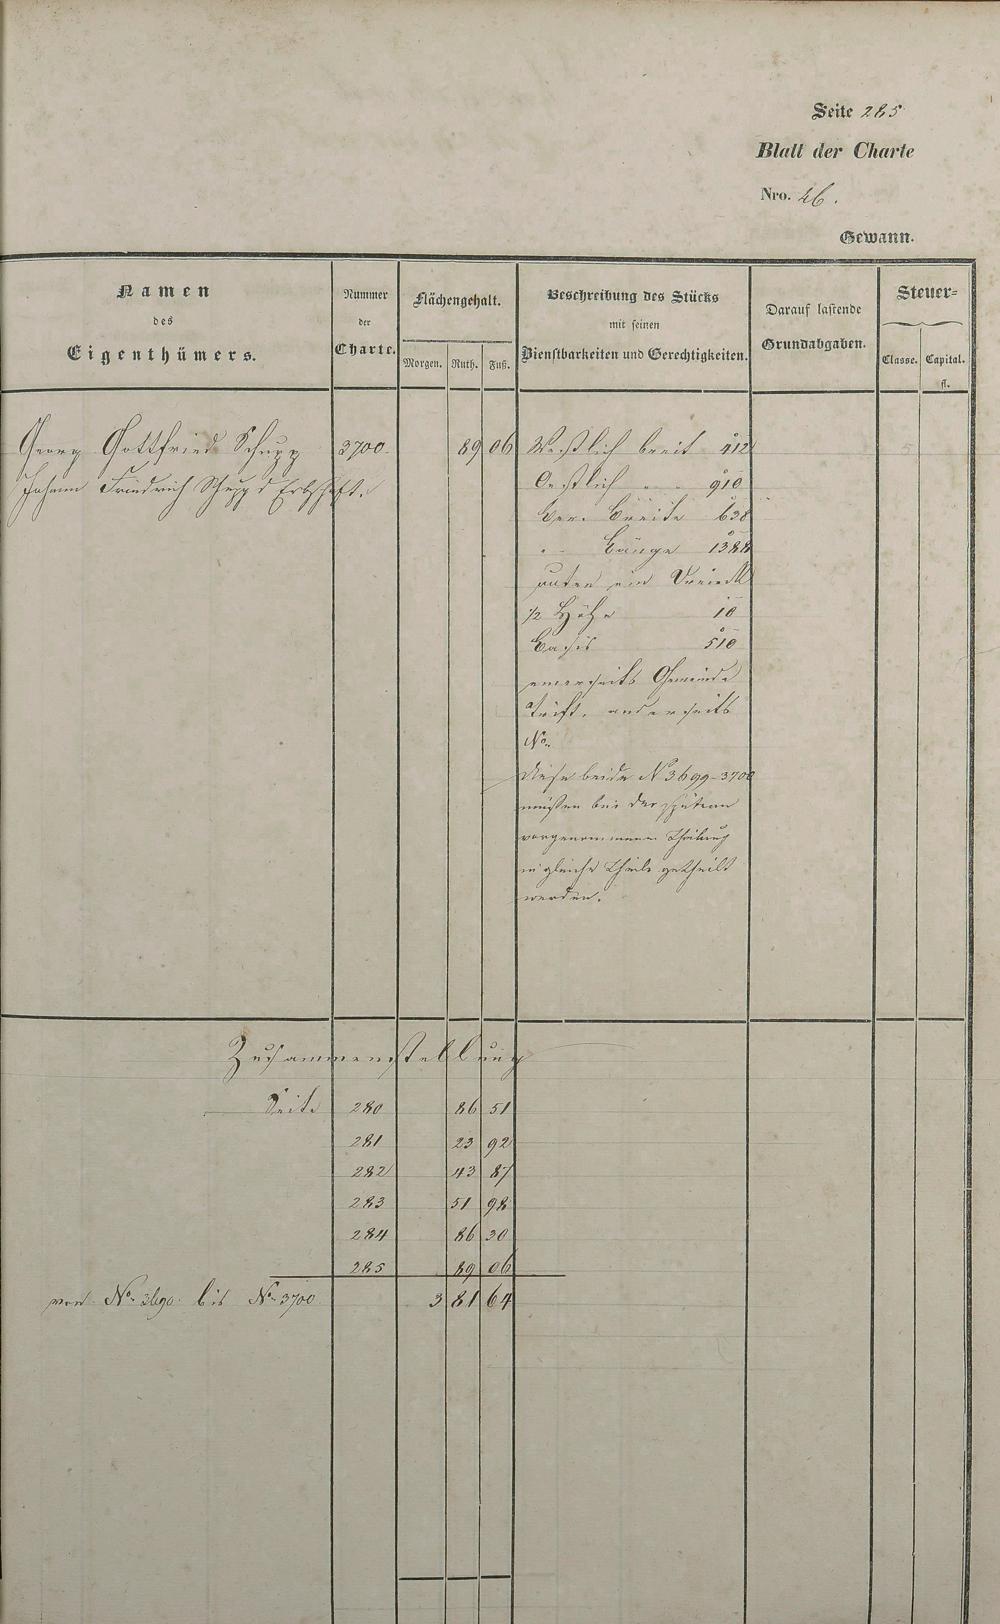 Seite 285
Blatt der Charte
Nro. 26.
Gewann.
Namen
des
Eigenthümers.
Nummer
der
Charte.
Flächengehalt.
Morgen. Ruth. Fuß.
Beschreibung des Stücks
mit seinen
Dienstbarkeiten und Gerechtigkeiten.
Darauf lastende
Grundabgaben.
Steuer-
Classe. Capital.
fl.
Georg Gottfried Schupp 3700. 89 06 Westlich breit 912
Johann Friedrich Schupp's Erbschaft. Oestlich " " 910
Ger. Breite 638
" Länge 1388
unten ein Dreieck
1/2 Höhe 10
Basis 510
einerseits Gemeinde
Trift, anderseits
No.
Diese beide No 3699-3700
müssen bei der späteren
vorgenommenen Theilung
in gleiche Theile getheilt
werden.
Zusammenstellung
Seite 280 86 51
281 23 92
282 43 87
283 51 98
284 86 30
285 89 06
von No. 3690. bis No. 3700 3 81 64